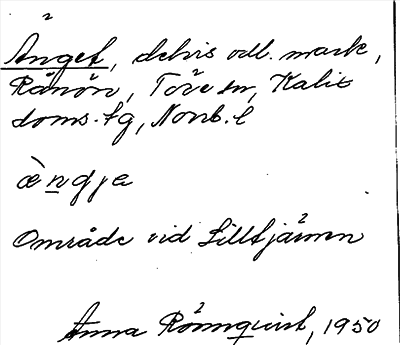 Änget, delvis odl. mark,
Rånön, Töre sn, Kalix
doms.tg, Norrb. l
ængja
Område vid Lilltjärnen
Anna Rönnqvist, 1950